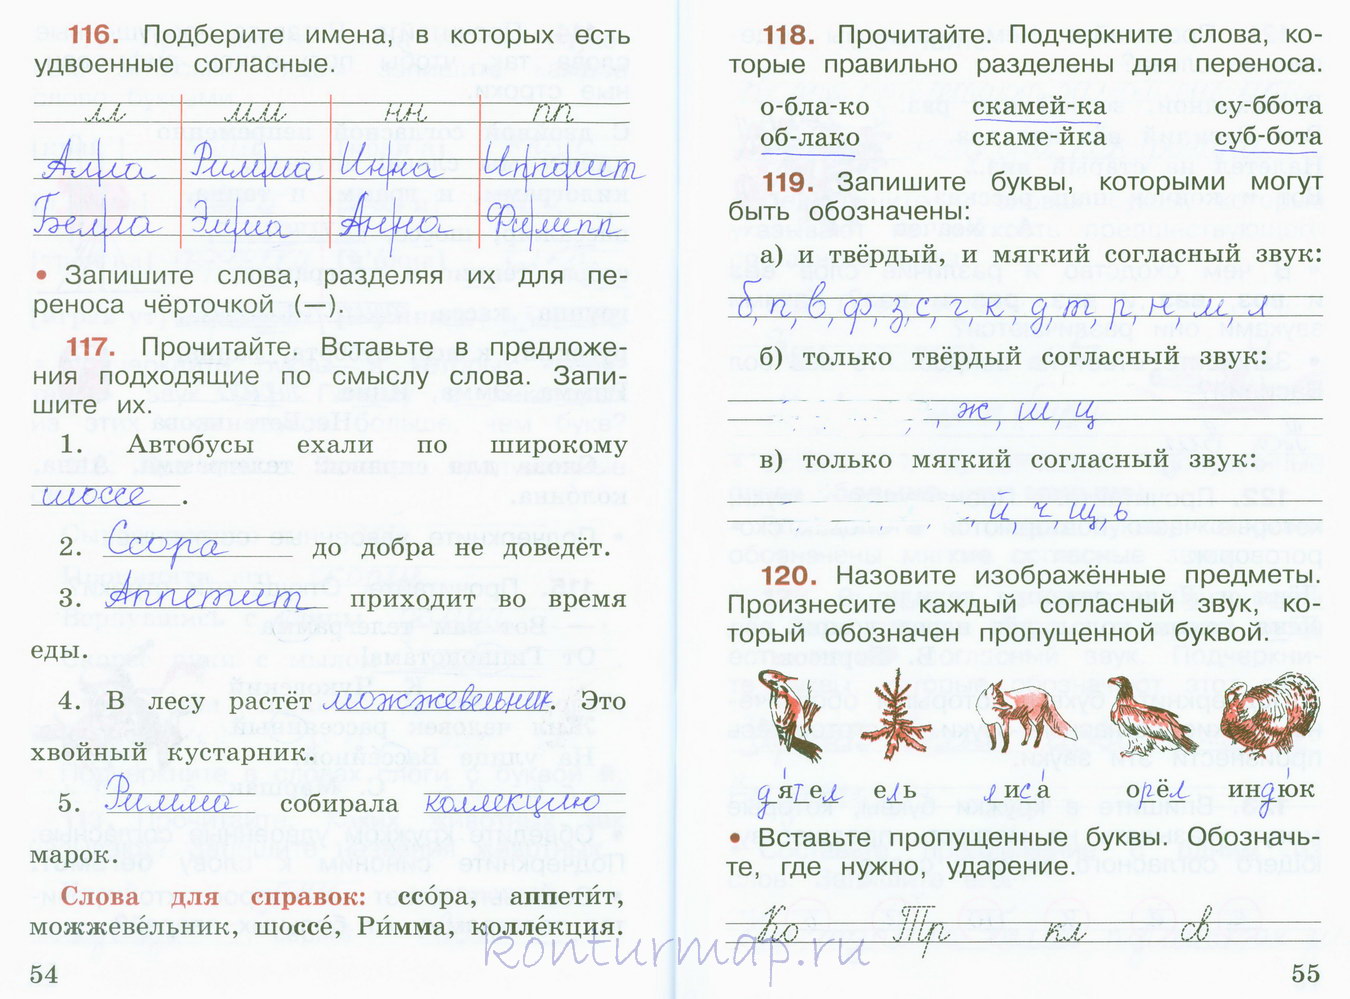 116. Подберите имена, в которых есть
удвоенные согласные.
лл мм нн пп
Алла Римма Инна Ипполит
Белла Эмма Анна Филипп
• Запишите слова, разделяя их для пе-
реноса чёрточкой (—).
117. Прочитайте. Вставьте в предложе-
ния подходящие по смыслу слова. Запи-
шите их.
1. Автобусы ехали по широкому
шоссе .
2. Ссора до добра не доведёт.
3. Аппетит приходит во время
еды.
4. В лесу растёт можжевельник. Это
хвойный кустарник.
5. Римма собирала коллекцию
марок.
Слова для справок: ссо́ра, аппети́т,
можжеве́льник, шоссе́, Ри́мма, колле́кция.
54
118. Прочитайте. Подчеркните слова, ко-
торые правильно разделены для переноса.
о-бла-ко скамей-ка су-ббота
об-лако скаме-йка суб-бота
119. Запишите буквы, которыми могут
быть обозначены:
а) и твёрдый, и мягкий согласный звук:
б, п, в, ф, з, с, г, к, д, т, р, н, м, л
б) только твёрдый согласный звук:
ж, ш, ц
в) только мягкий согласный звук:
й, ч, щ, ь
120. Назовите изображённые предметы.
Произнесите каждый согласный звук, ко-
торый обозначен пропущенной буквой.
дя́тел ель лиса́ орёл индю́к
• Вставьте пропущенные буквы. Обозначь-
те, где нужно, ударение.
Ко Тр кл св
55
konturmap.ru